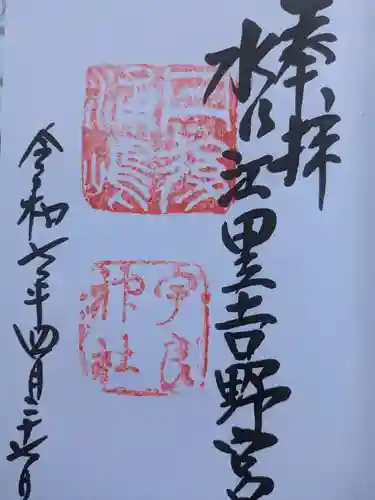 奉拝
水之江里吉野宮
宇良
神社
令和六年四月二十七日